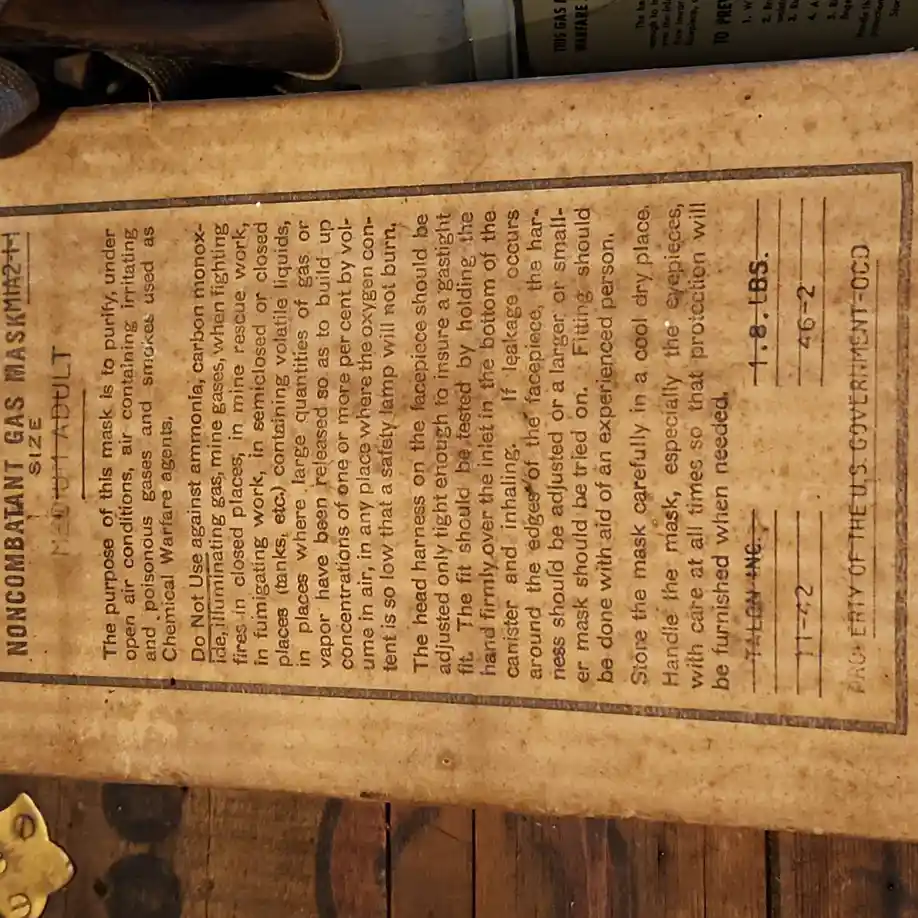 NONCOMBATANT GAS MASK M1A2-1-1
SIZE
ADULT
The purpose of this mask is to purify, under
open air conditions, air containing irritating
and poisonous gases and smokes used as
Chemical Warfare agents.
Do Not Use against ammonia, carbon monox-
ide, illuminating gas, mine gases, when fighting
fires in closed places, in mine rescue work,
in fumigating work, in semiclosed or closed
places (tanks, etc.) containing volatile liquids,
in places where large quantities of gas or
vapor have been released so as to build up
concentrations of one or more per cent by vol-
ume in air, in any place where the oxygen con-
tent is so low that a safety lamp will not burn.
The head harness on the facepiece should be
adjusted only tight enough to insure a gastight
fit. The fit should be tested by holding the
hand firmly over the inlet in the bottom of the
canister and inhaling. If leakage occurs
around the edges of the facepiece, the har-
ness should be adjusted or a larger or small-
er mask should be tried on. Fitting should
be done with aid of an experienced person.
Store the mask carefully in a cool dry place.
Handle the mask, especially the eyepieces,
with care at all times so that protection will
be furnished when needed.
TALON INC. 1.8 LBS.
11-42 46-2
PROPERTY OF THE U.S. GOVERNMENT-OCD
THIS GAS
WARFARE
TO PREV